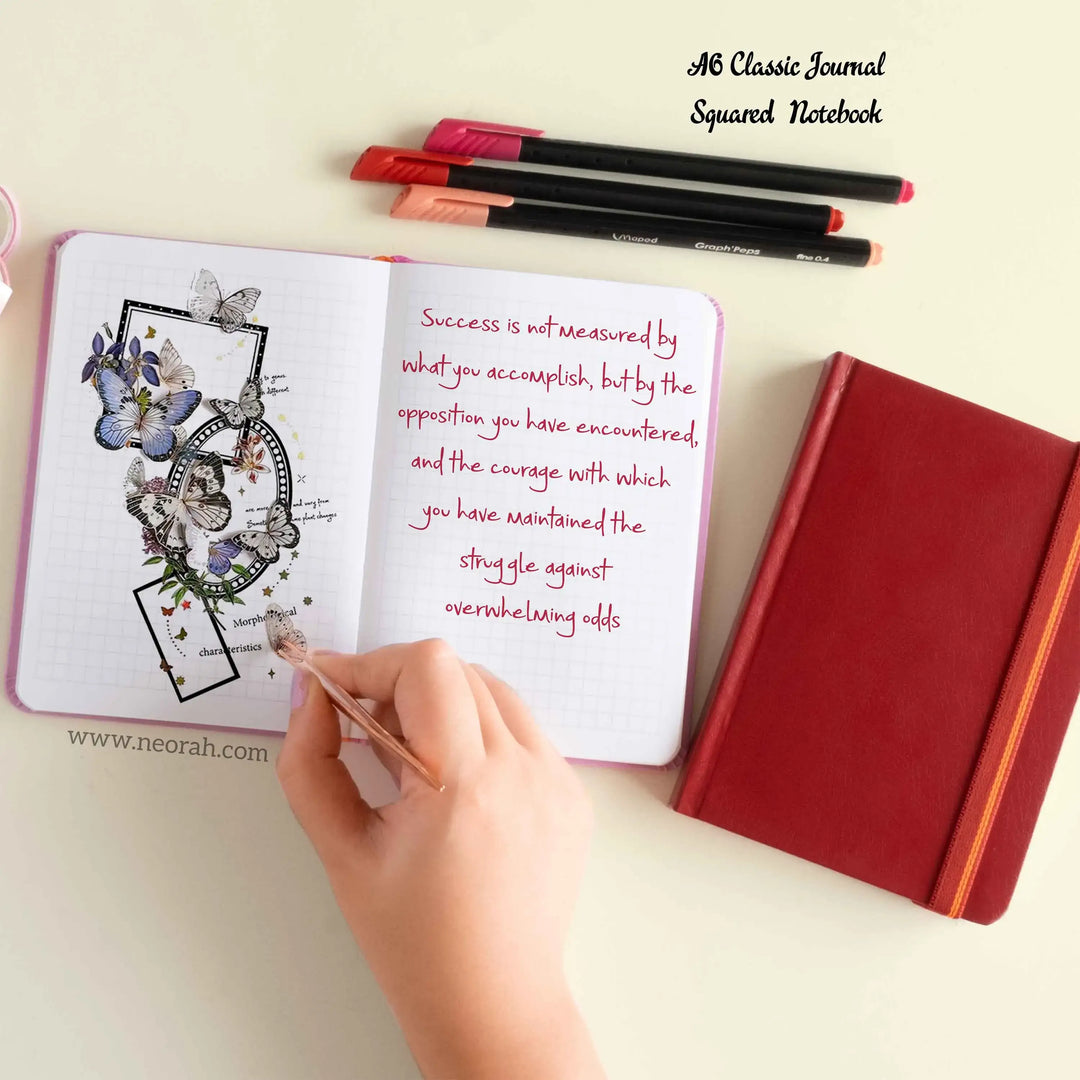 A6 Classic Journal
Squared Notebook
Maped Graph'Peps fine 0.4
to genus
different
are more and vary from
some plant changes
Morphological
characteristics
Success is not measured by
what you accomplish, but by the
opposition you have encountered,
and the courage with which
you have maintained the
struggle against
overwhelming odds
www.neorah.com